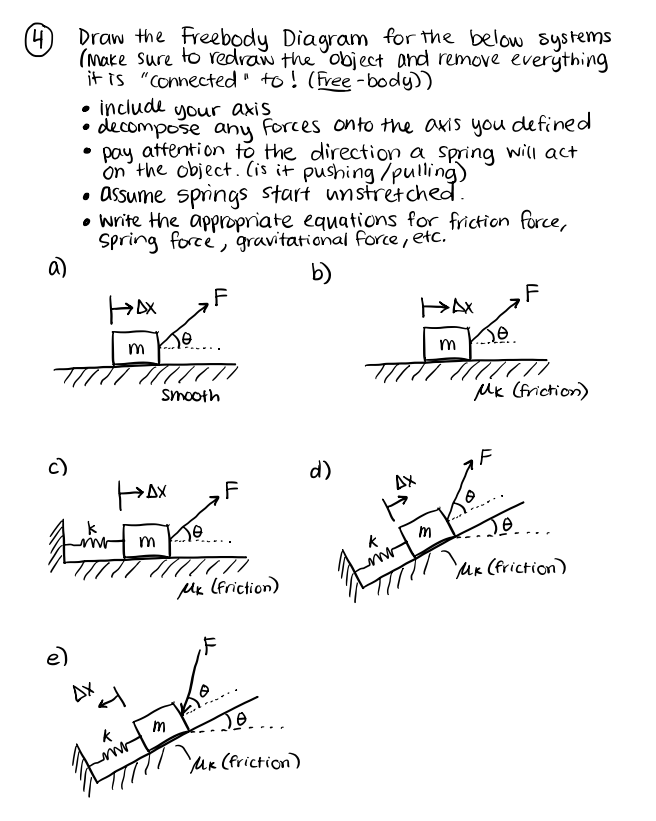 ④ Draw the Freebody Diagram for the below systems
(Make sure to redraw the object and remove everything
it is "connected" to! (Free-body))
• include your axis
• decompose any forces onto the axis you defined
• pay attention to the direction a spring will act
on the object. (is it pushing/pulling)
• assume springs start unstretched.
• write the appropriate equations for friction force,
spring force, gravitational force, etc.
a)
Δx
F
θ
m
smooth
b)
Δx
F
θ
m
μk (friction)
c)
Δx
F
k
θ
m
μk (friction)
d)
Δx
F
θ
k
m
θ
μk (friction)
e)
F
Δx
θ
k
m
θ
μk (friction)